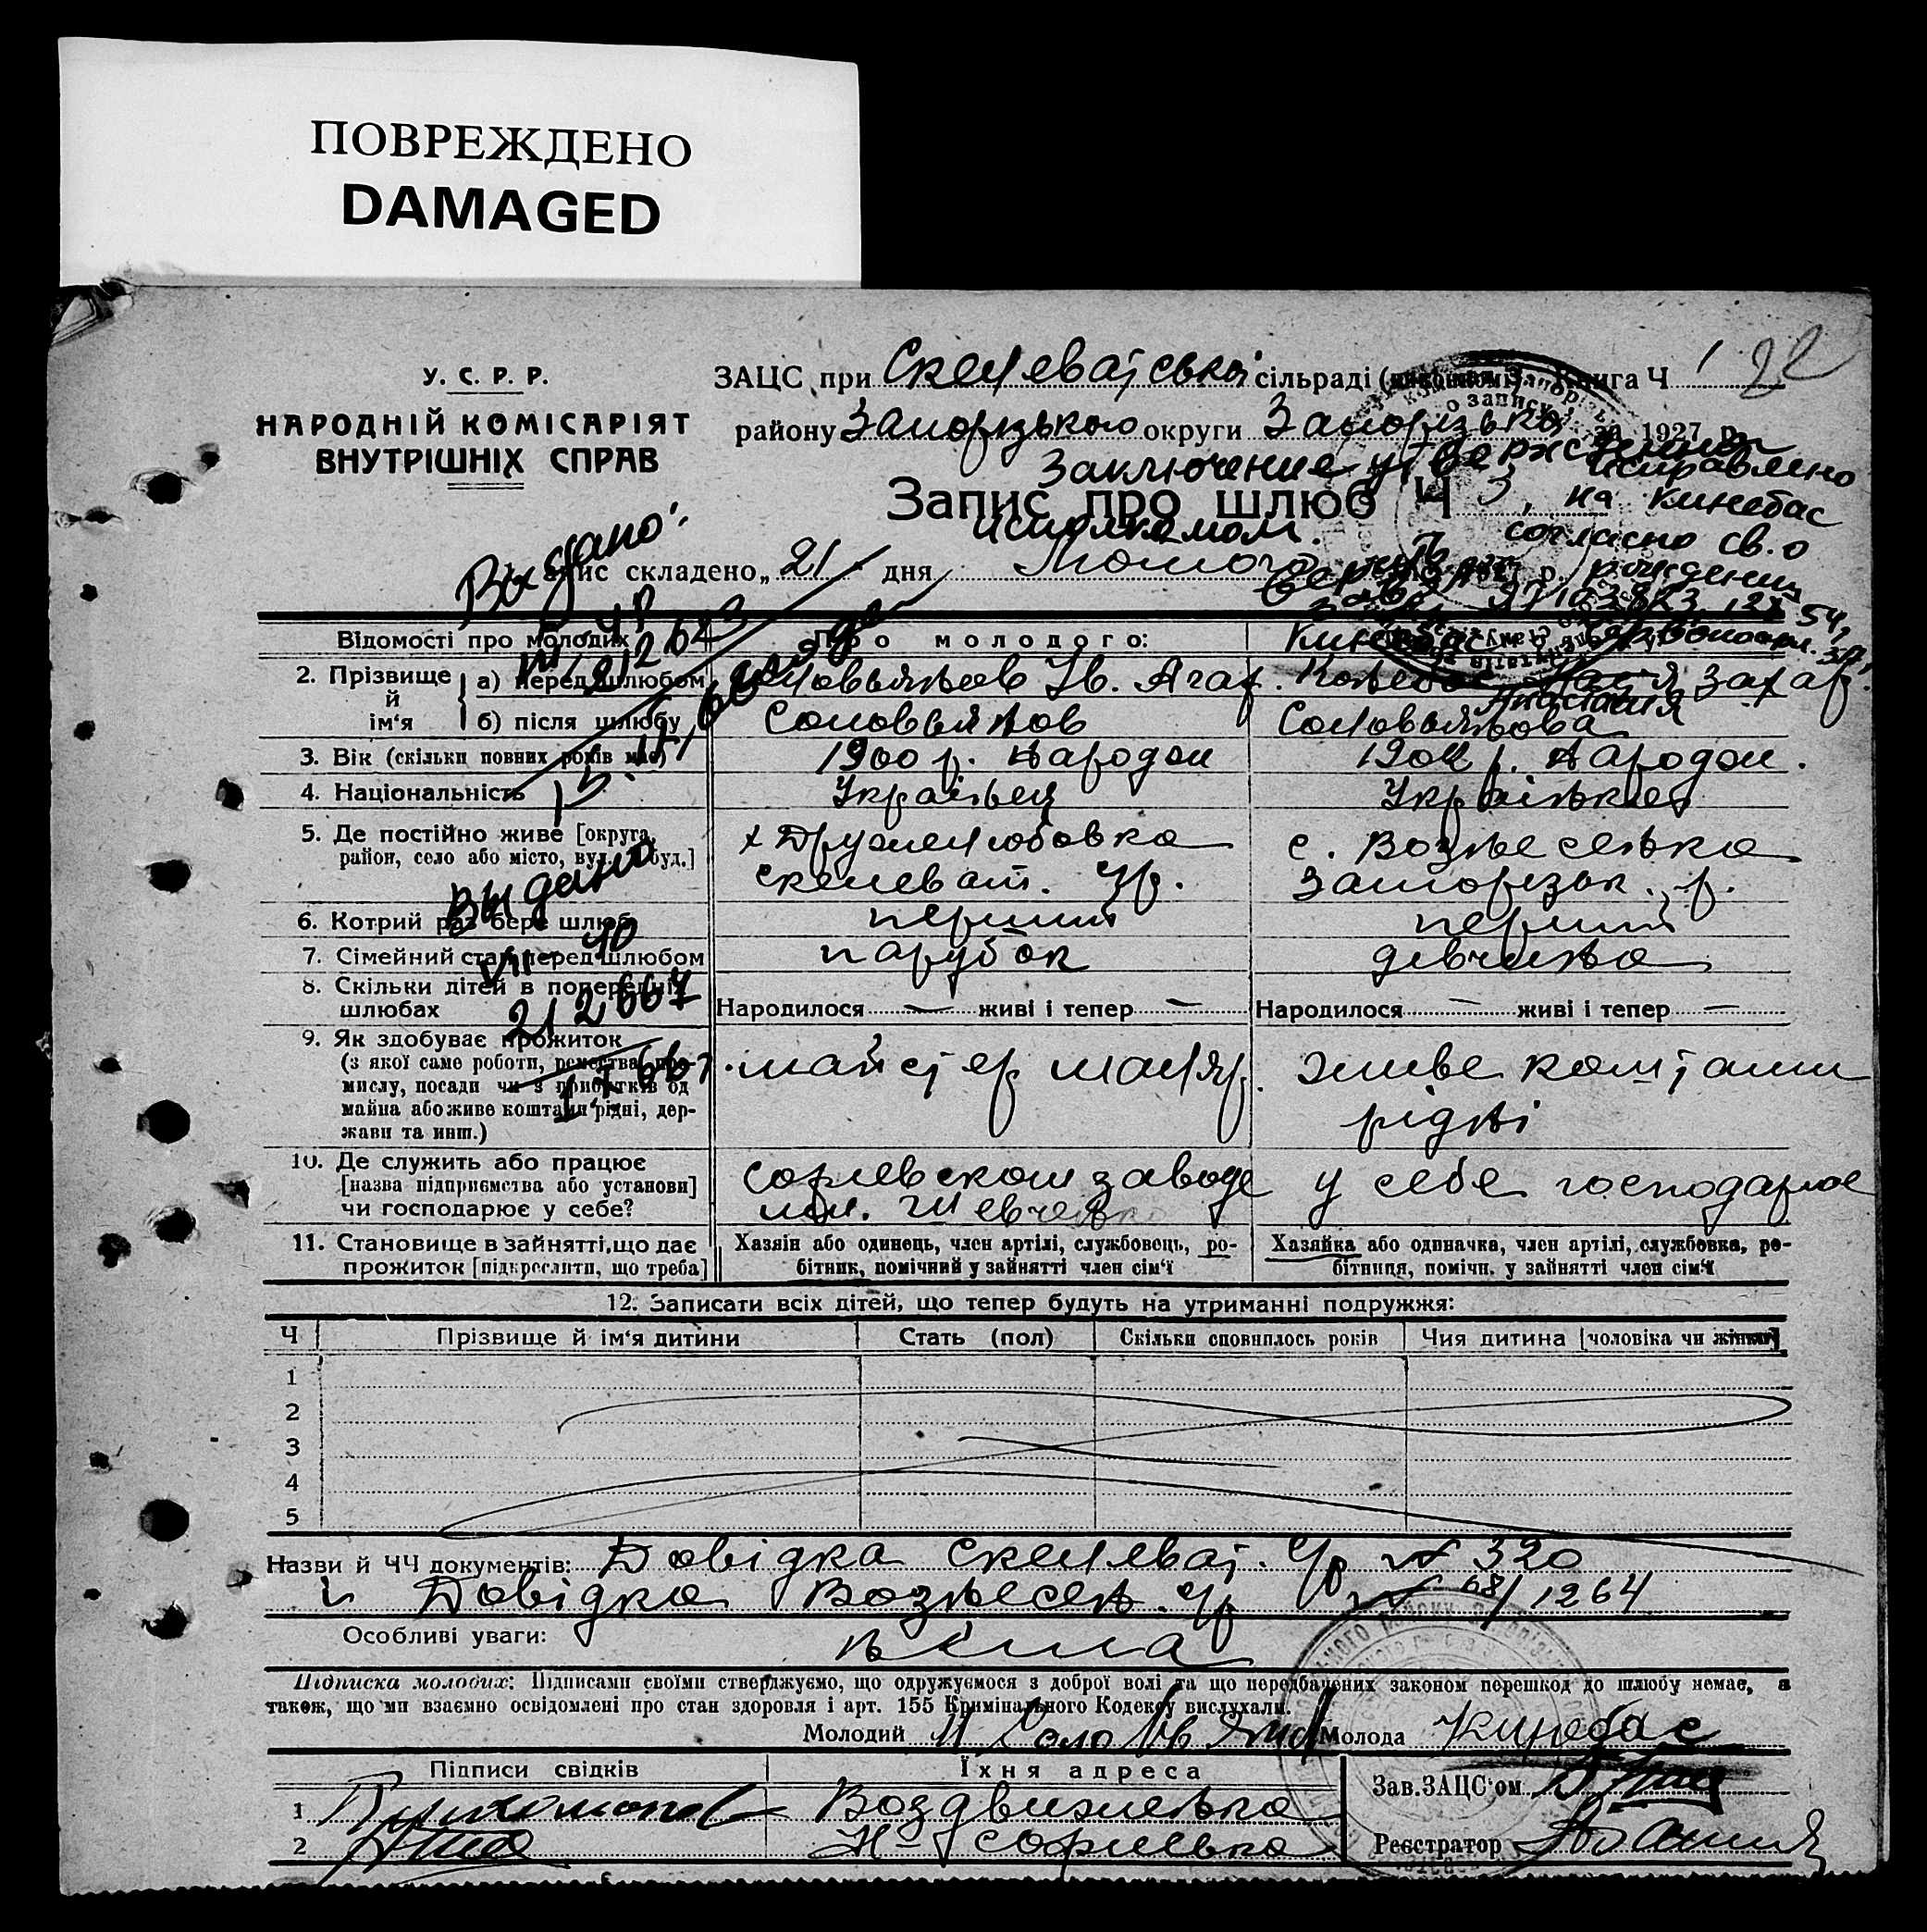 ПОВРЕЖДЕНО
DAMAGED
У. С. Р. Р.
НАРОДНІЙ КОМІСАРІЯТ
ВНУТРІШНІХ СПРАВ
ЗАЦС при Скелеватській сільраді Книга Ч 1
22
району Запорізького округи Запорізької 1927 р.
Заключение утверждено
исполкомом.
исправлено
на Кинебас
согласно св. о
рождении
Запис про шлюб Ч 3
Запис складено „21" дня Лютого
Видано
VII 40
212643
Видано
VII 40
212667
Відомості про молодих
Про молодого:
Кинебас
2. Прізвище й ім'я
а) перед шлюбом
Соловьяньов Ів. Агаф.
Настя Захар.
Анастасия
б) після шлюбу
Соловьянов
Соловьяньова
3. Вік (скільки повних років має)
1900 р. народж
1902 р. народж.
4. Національність
Українец
Українка
5. Де постійно живе [округа, район, село або місто, вул. буд.]
х Дружелюбовка
Скелеват. с/р.
с. Вознесенка
Запорізьк. р.
6. Котрий раз бере шлюб
перший
перший
7. Сімейний стан перед шлюбом
парубок
дівчина
8. Скільки дітей в попередніх шлюбах
Народилося — живі і тепер —
Народилося — живі і тепер —
9. Як здобуває прожиток
(з якої саме роботи, ремества, про-
мислу, посади чи з прибутків од
майна або живе коштами рідні, дер-
жави та инш.)
майстер маляр.
живе коштами
рідні
10. Де служить або працює
[назва підприємства або установи]
чи господарює у себе?
Софиевском заводе
им. Шевченко
у себе господарює
11. Становище в зайнятті, що дає
прожиток [підкреслити, що треба]
Хазяїн або одинець, член артілі, службовець, ро-
бітник, помічний у зайнятті член сім'ї
Хазяйка або одиначка, член артілі, службовка, ро-
бітниця, помічн. у зайнятті член сім'ї
12. Записати всіх дітей, що тепер будуть на утриманні подружжя:
Ч
Прізвище й ім'я дитини
Стать (пол)
Скільки сповнилось років
Чия дитина [чоловіка чи жінки]
1
2
3
4
5
Назви й ЧЧ документів: Довідка Скелеват. с/р № 320
и Довідка Вознесен. с/р № 68/1264
Особливі уваги: нема
Підписка молодих: Підписами своїми стверджуємо, що одружуємося з доброї волі та що передбачених законом перешкод до шлюбу немає, а
також, що ми взаємно освідомлені про стан здоровля і арт. 155 Кримінального Кодексу вислухали.
Молодий И Соловьянов
Молода Кинебас
Підписи свідків
Їхня адреса
1
Воздвиженька
2
Н-Софиевка
Зав. ЗАЦС'ом
Реєстратор